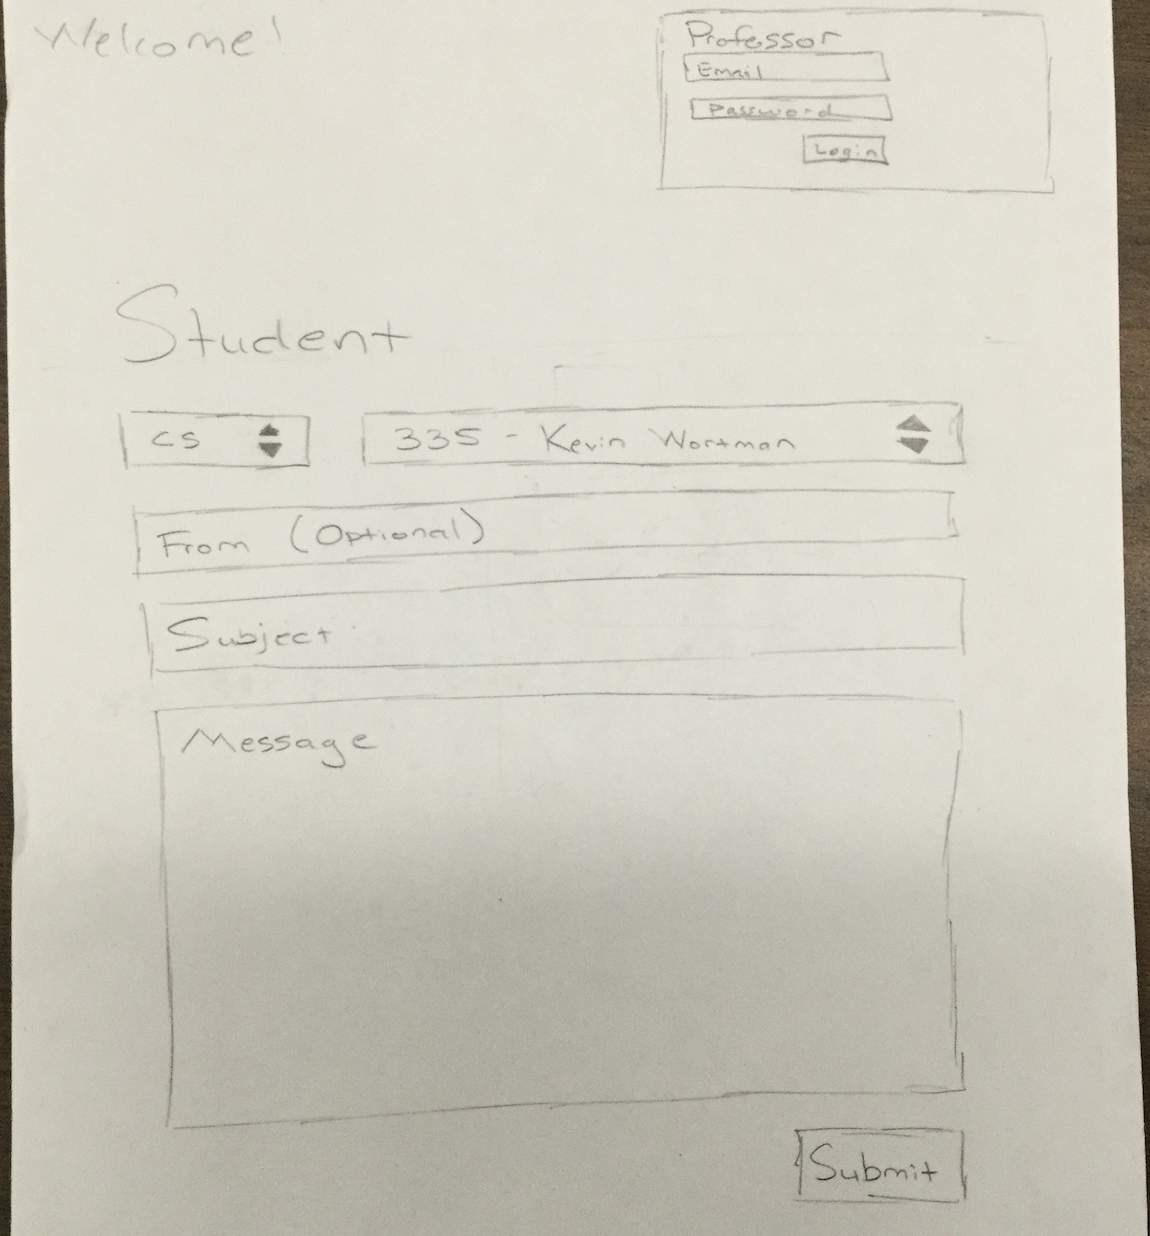 Welcome!
Professor
Email
Password
Login
Student
CS
335 - Kevin Wortman
From (Optional)
Subject
Message
Submit